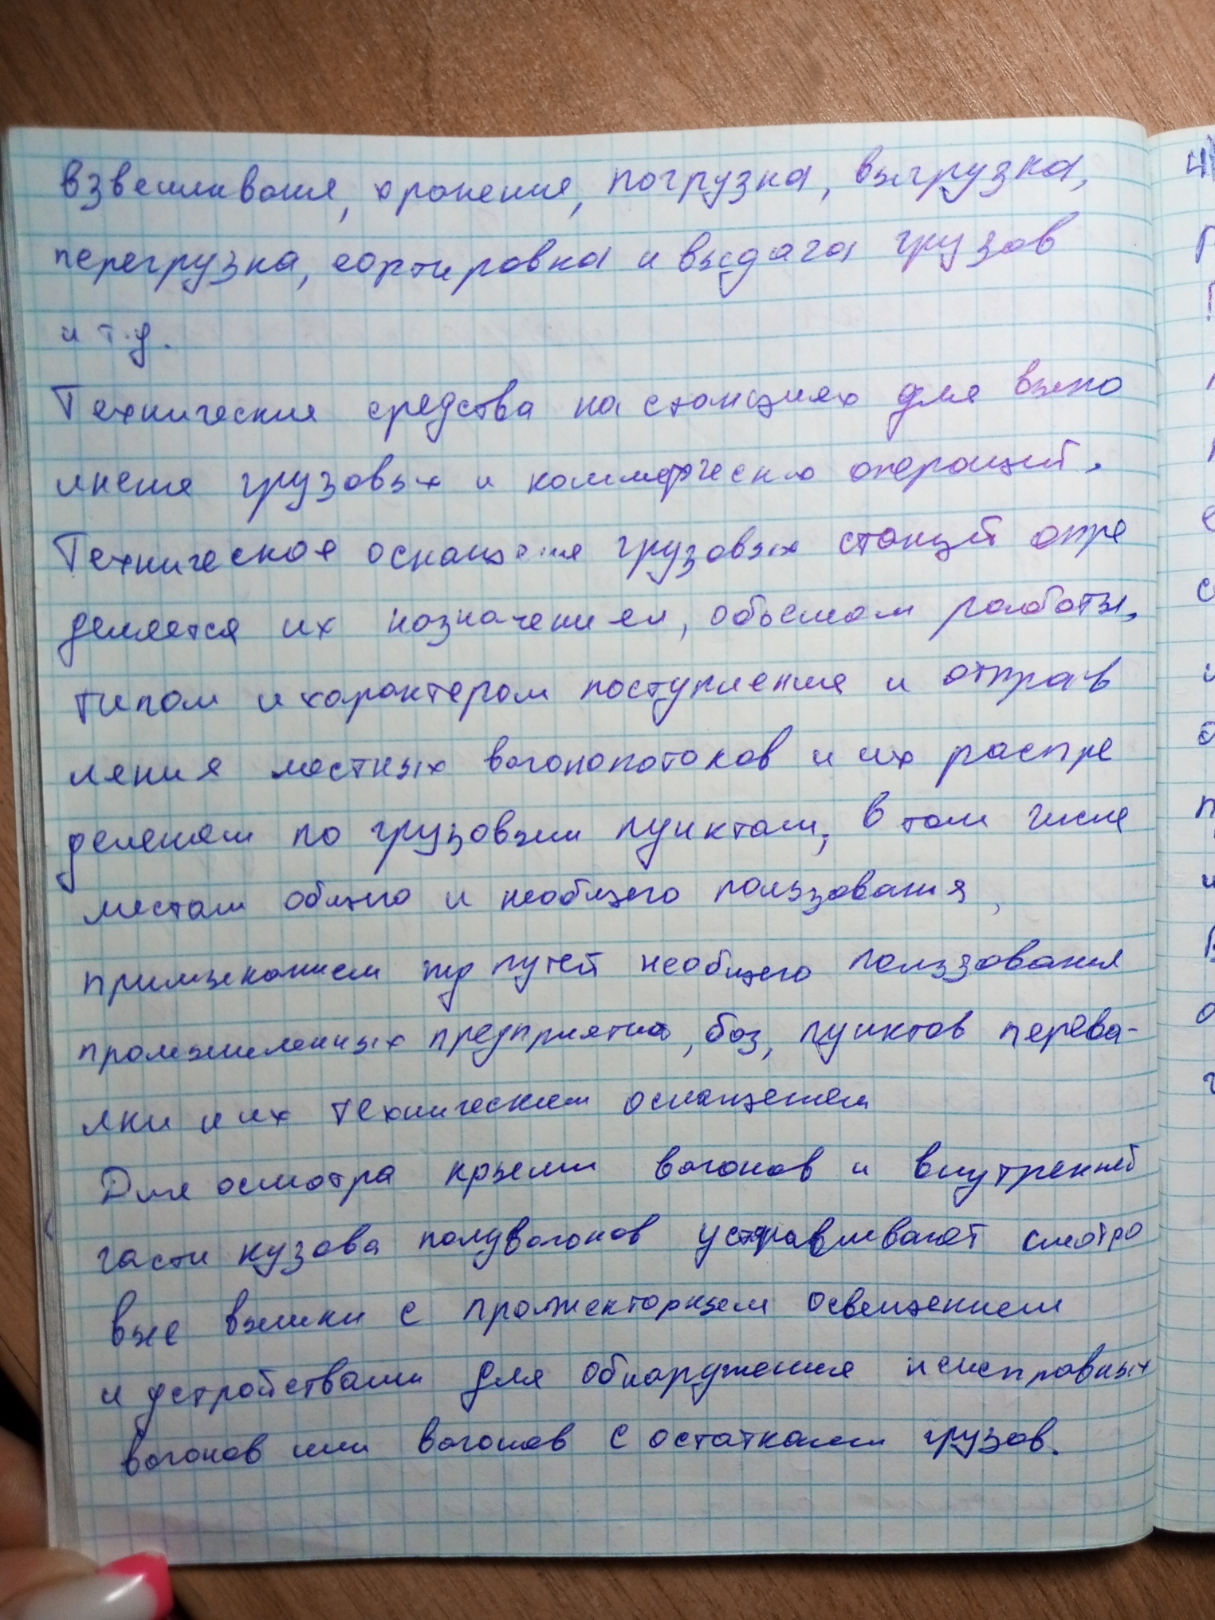 взвешивания, хранения, погрузка, выгрузка,
перегрузка, сортировка и выдача грузов
и т.д.
Технические средства на станциях для выпо
лнения грузовых и коммерческих операций.
Техническое оснащение грузовых станций опре
деляется их назначением, объемом работы,
типом и характером поступления и отправ
ления местных вагонопотоков и их распре
делением по грузовым пунктам, в том числе
местам общего и необщего пользования,
примыканием жд путей необщего пользования
промышленных предприятий, баз, пунктов перева-
лки и их техническим оснащением
Для осмотра крыши вагонов и внутренней
части кузова полувагонов устраивают смотро
вые вышки с прожекторным освещением
и устройствами для обнаружения неисправных
вагонов или вагонов с остатками грузов.
4)